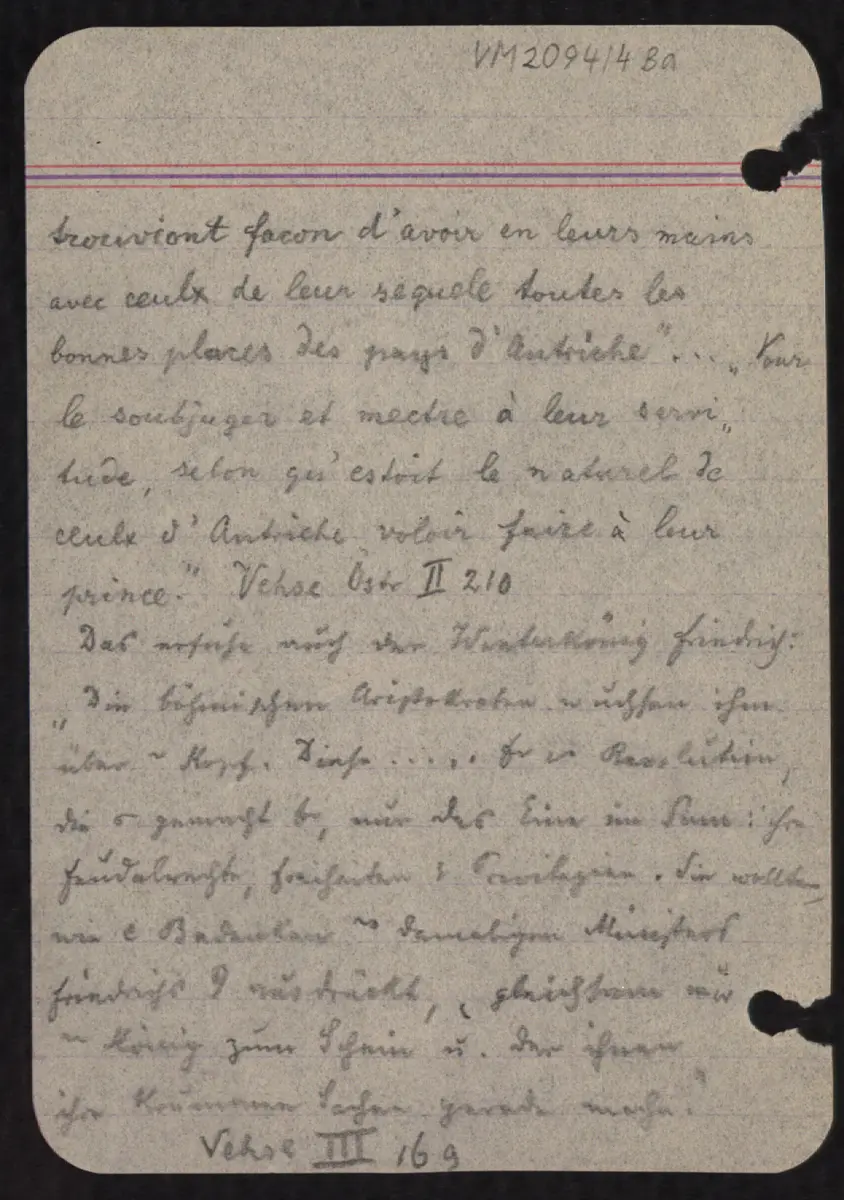 VM2094/4 Ba
trouviont façon d'avoir en leurs mains
avec ceulx de leur sequele toutes les
bonnes places des pays d'Autriche"... „Pour
le soubjuger et mectre à leur servi„
tude, selon qu'estoit le naturel de
ceulx d'Autriche voloir faire à leur
prince." Vehse Östr II 210
Das erfuhr auch der Winterkönig Friedrich:
„Die böhmischen Aristokraten wuchsen ihm
über Kopf. Diese ..... Revolution,
die gemacht, nur das Eine im Sinn: ihre
Feudalrechte, Freiheiten & Privilegien. Sie wollten,
wie Bedenken damaligen Ministers
Friedrichs ausdrückt, gleichsam nur
König zum Schein u. der ihnen
ihre krummen Sachen gerade mache."
Vehse III 169